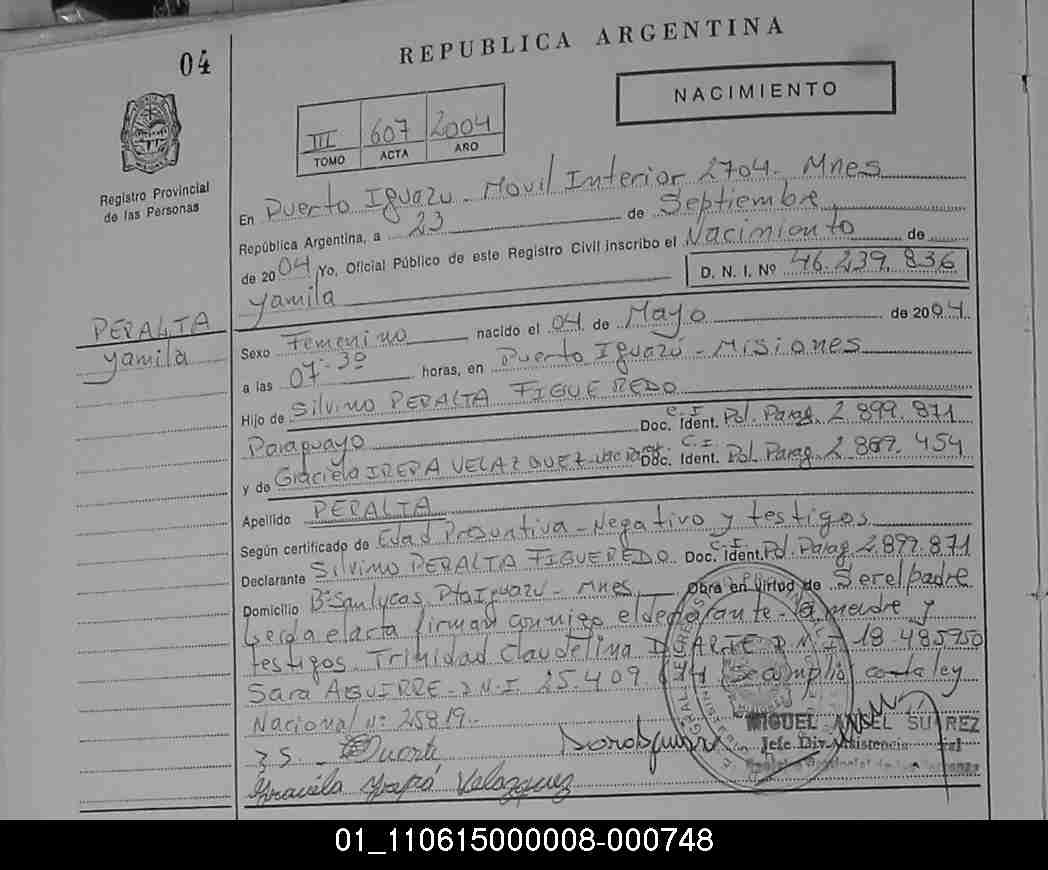 04
REPUBLICA ARGENTINA
NACIMIENTO
III 607 2004
TOMO ACTA AÑO
Registro Provincial
de las Personas
En Puerto Iguazu - Movil Interior 2704. Mnes
República Argentina, a 23 de Septiembre
de 2004 Yo, Oficial Público de este Registro Civil inscribo el Nacimiento de
Yamila D. N. I. Nº 46.239.836
PERALTA
Yamila
Sexo Femenino nacido el 04 de Mayo de 2004
a las 07-30 horas, en Puerto Iguazú - Misiones
Hijo de Silvino PERALTA FIGUEREDO
Paraguayo C.I. Doc. Ident. Pol. Parag. 2.899.871
y de Graciela VELAZQUEZ C.I. Doc. Ident. Pol. Parag. 2.867.454
Apellido PERALTA
Según certificado de Edad Presuntiva - Negativo y testigos
Declarante Silvino PERALTA FIGUEREDO C.I. Doc. Ident. Pol. Parag 2.899.871
Domicilio Bº San Lucas, Pto Iguazú - Mnes Obra en virtud de Ser el padre
Leida el acta firman conmigo el declarante - la madre y
testigos Trinidad Claudelina DUARTE D.N.I 18.485.750
Sara AGUIRRE - D.N.I. 25.409 Se cumplio con la ley
Nacional Nº 25819.
MIGUEL ANGEL SUAREZ
Jefe Div. Asistencia
Registro Provincial de las Personas
Duarte
Graciela Velazquez
01_110615000008-000748